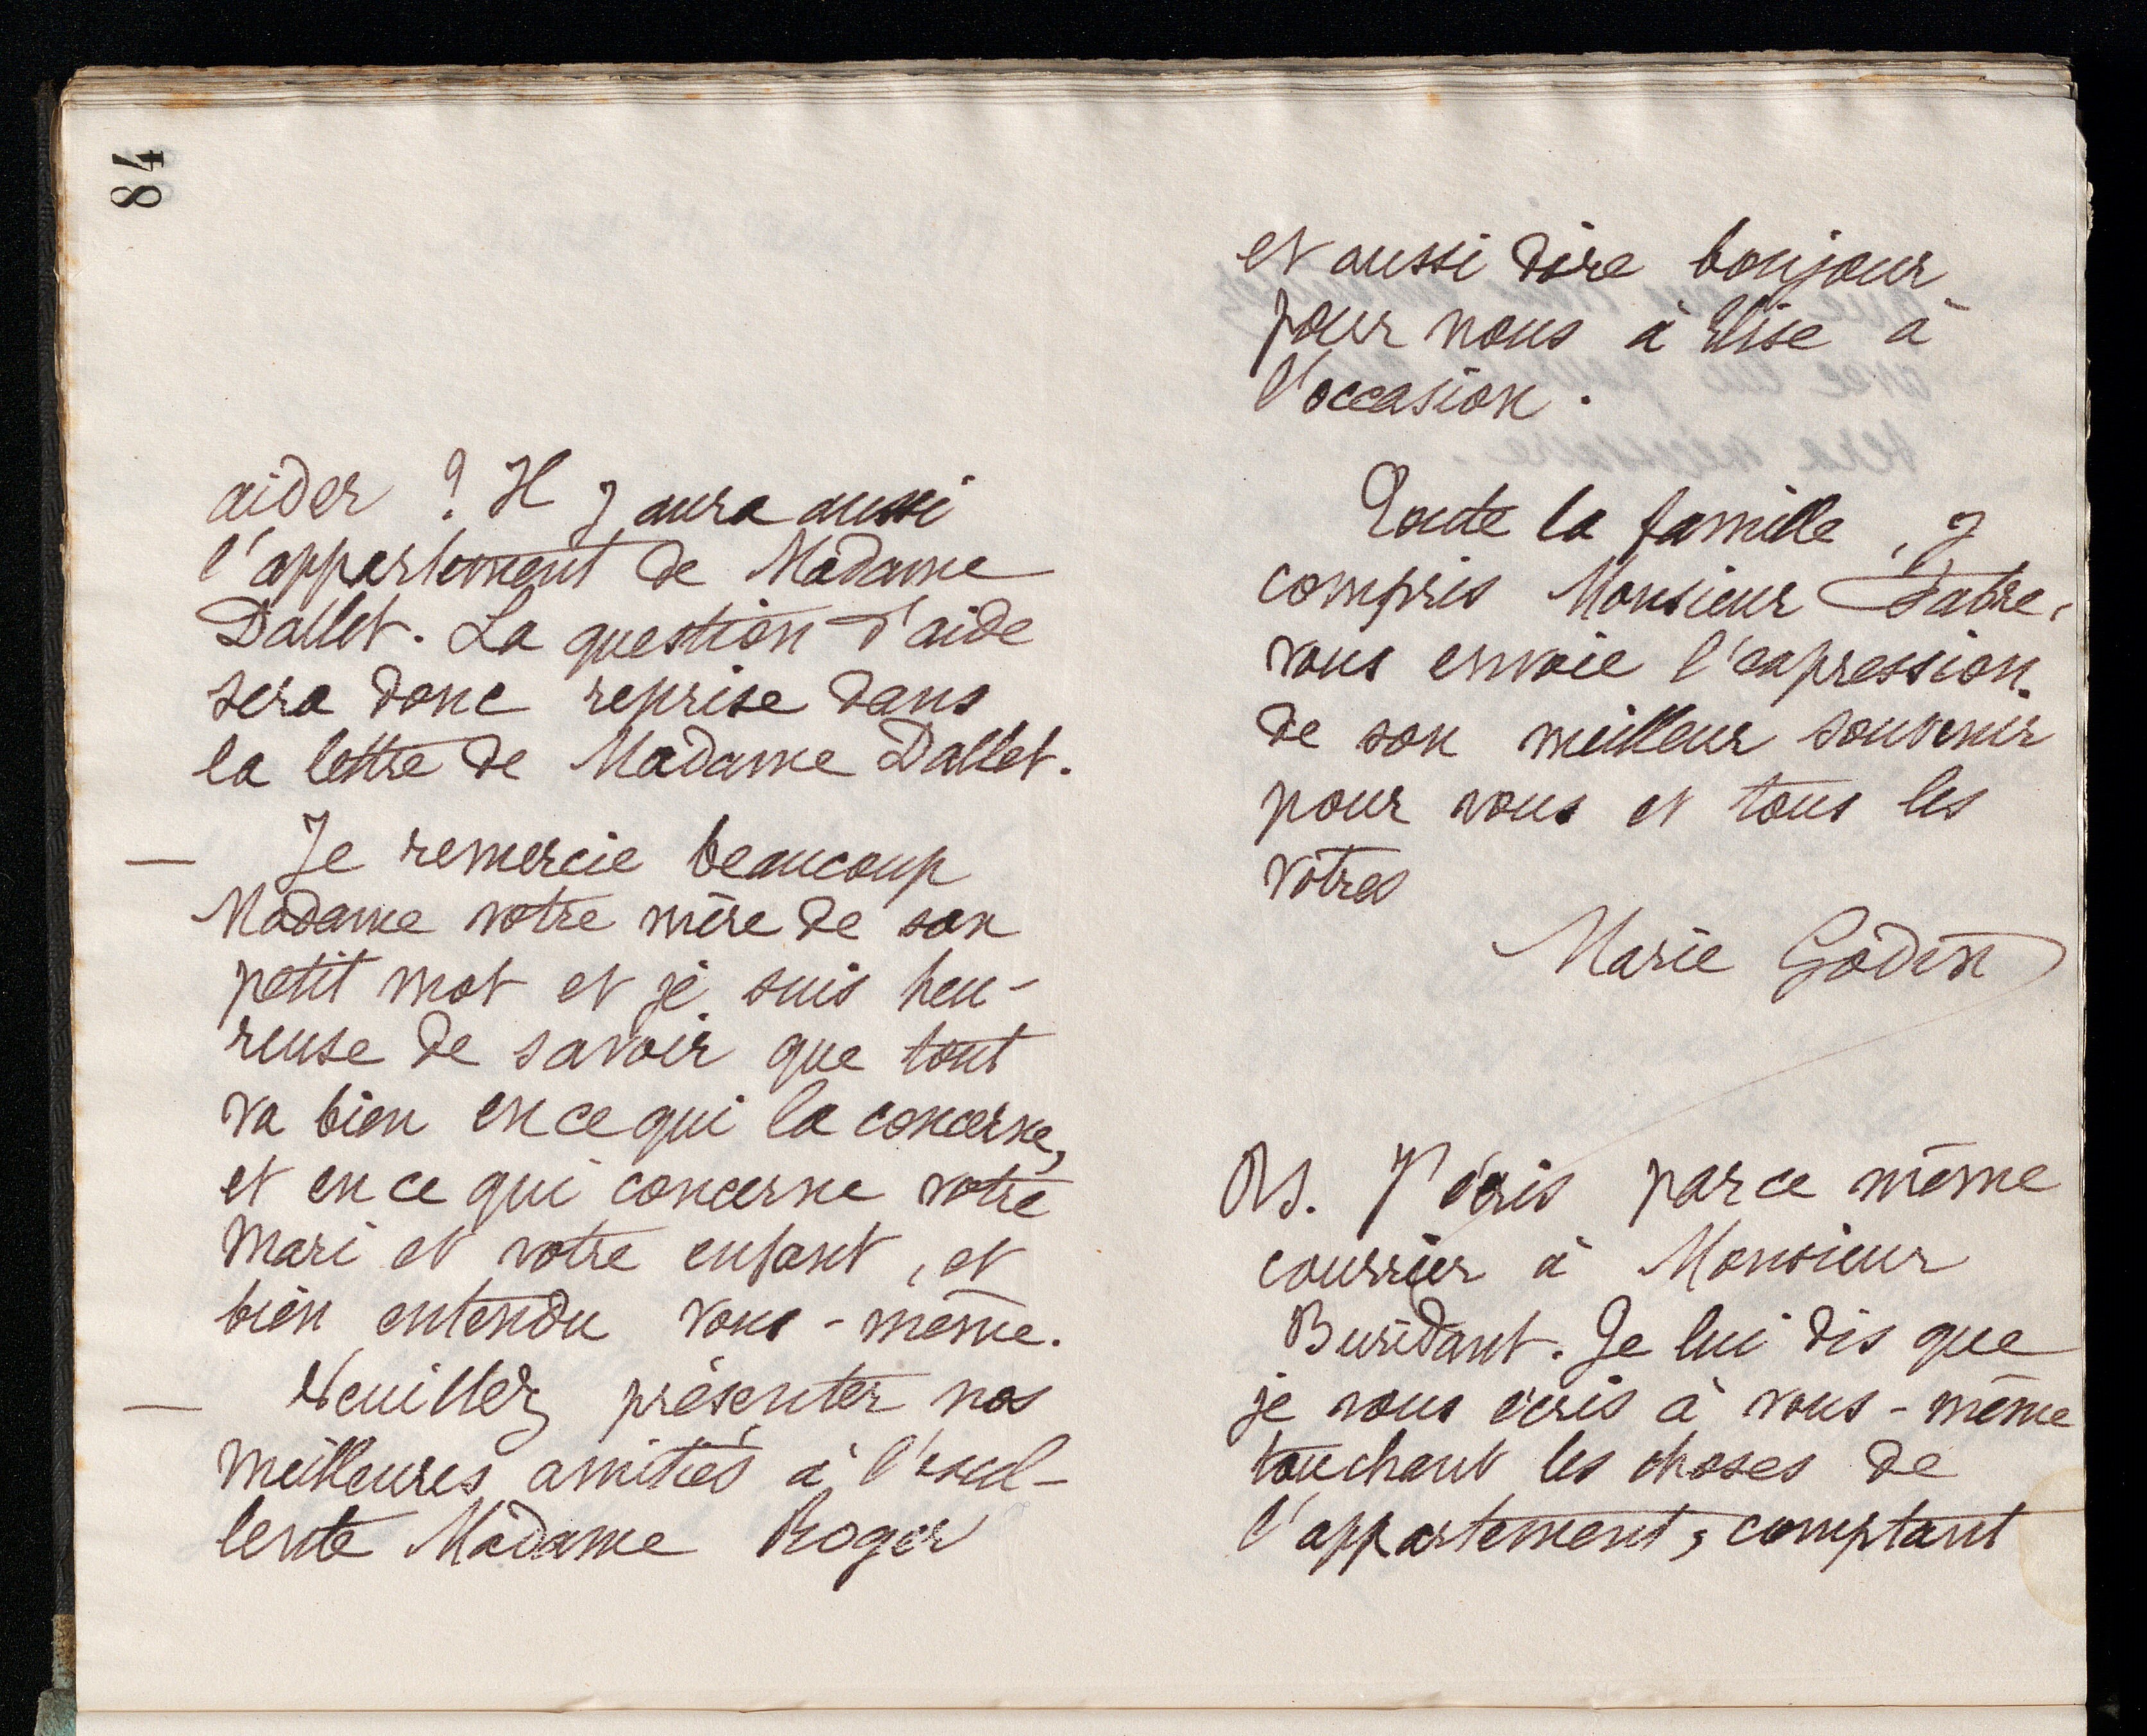 84
aider ? Il y aura aussi
l'appartement de Madame
Dallet. La question d'aide
sera donc reprise dans
la lettre de Madame Dallet.
— Je remercie beaucoup
Madame votre mère de son
petit mot et je suis heu-
reuse de savoir que tout
va bien en ce qui la concerne,
et en ce qui concerne votre
mari et votre enfant, et
bien entendu vous-même.
— Veuillez présenter nos
meilleures amitiés à l'excel-
lente Madame Roger
et aussi dire bonjour
pour nous à Elise à
l'occasion.
Toute la famille, y
compris Monsieur Fabre,
vous envoie l'expression
de son meilleur souvenir
pour vous et tous les
vôtres
Marie Godin
Ps. J'écris par ce même
courrier à Monsieur
Buridant. Je lui dis que
je vous écris à vous-même
touchant les choses de
l'appartement, comptant